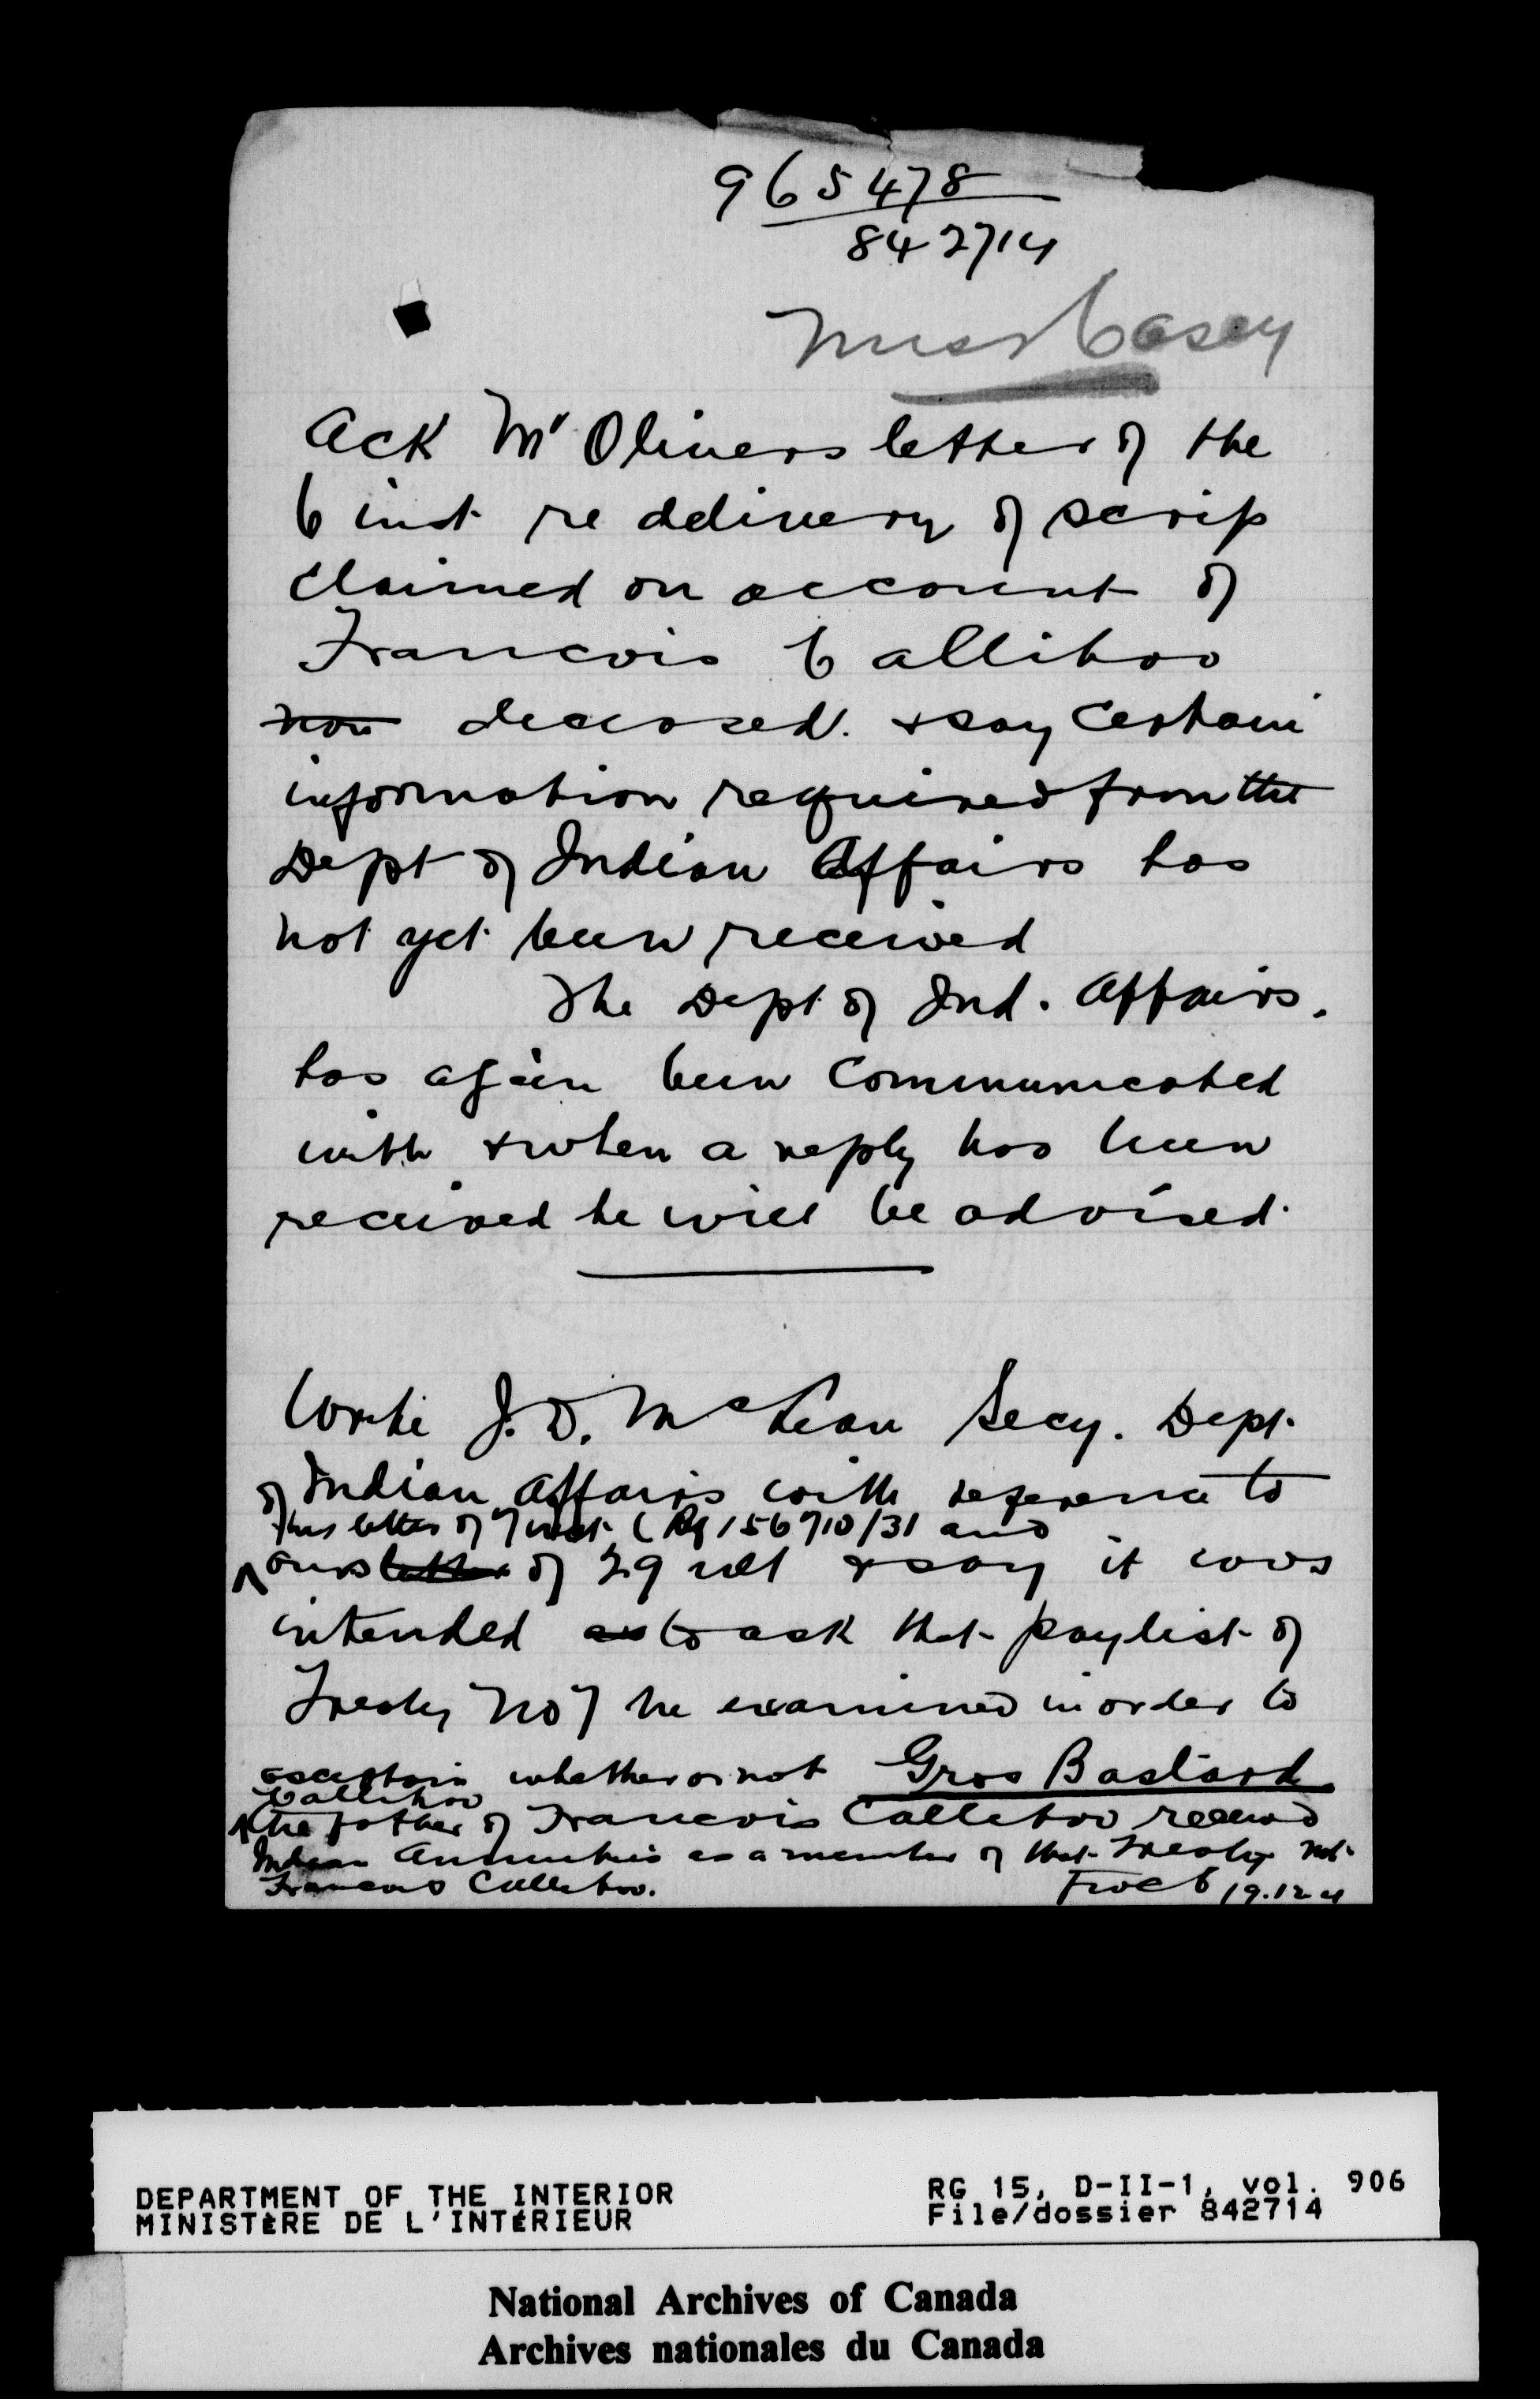 965478
842714
Miss Casey
Ack Mr Olivers letter of the
6 inst re delivery of scrip
claimed on account of
Francois Callihoo
now deceased. & say Certain
information required from the
Dept of Indian Affairs has
not yet been received
The Dept of Ind. Affairs.
has again been Communicated
with & when a reply has been
received he will be advised.
Write J. D. McLean Secy. Dept.
of Indian Affairs with reference to
his letter of 7 inst. (Rf 156710/31 and
ours letter of 29 ult & say it was
intended as to ask that paylist of
Treaty No 7 be examined in order to
ascertain whether or not Gros Bastard
Callihoo
the father of Francois Callihoo received
Indian Annuities as a member of that Treaty not
Francois Callihoo.
19.12.4
DEPARTMENT OF THE INTERIOR
MINISTÈRE DE L'INTÉRIEUR
RG 15, D-II-1, vol. 906
File/dossier 842714
National Archives of Canada
Archives nationales du Canada